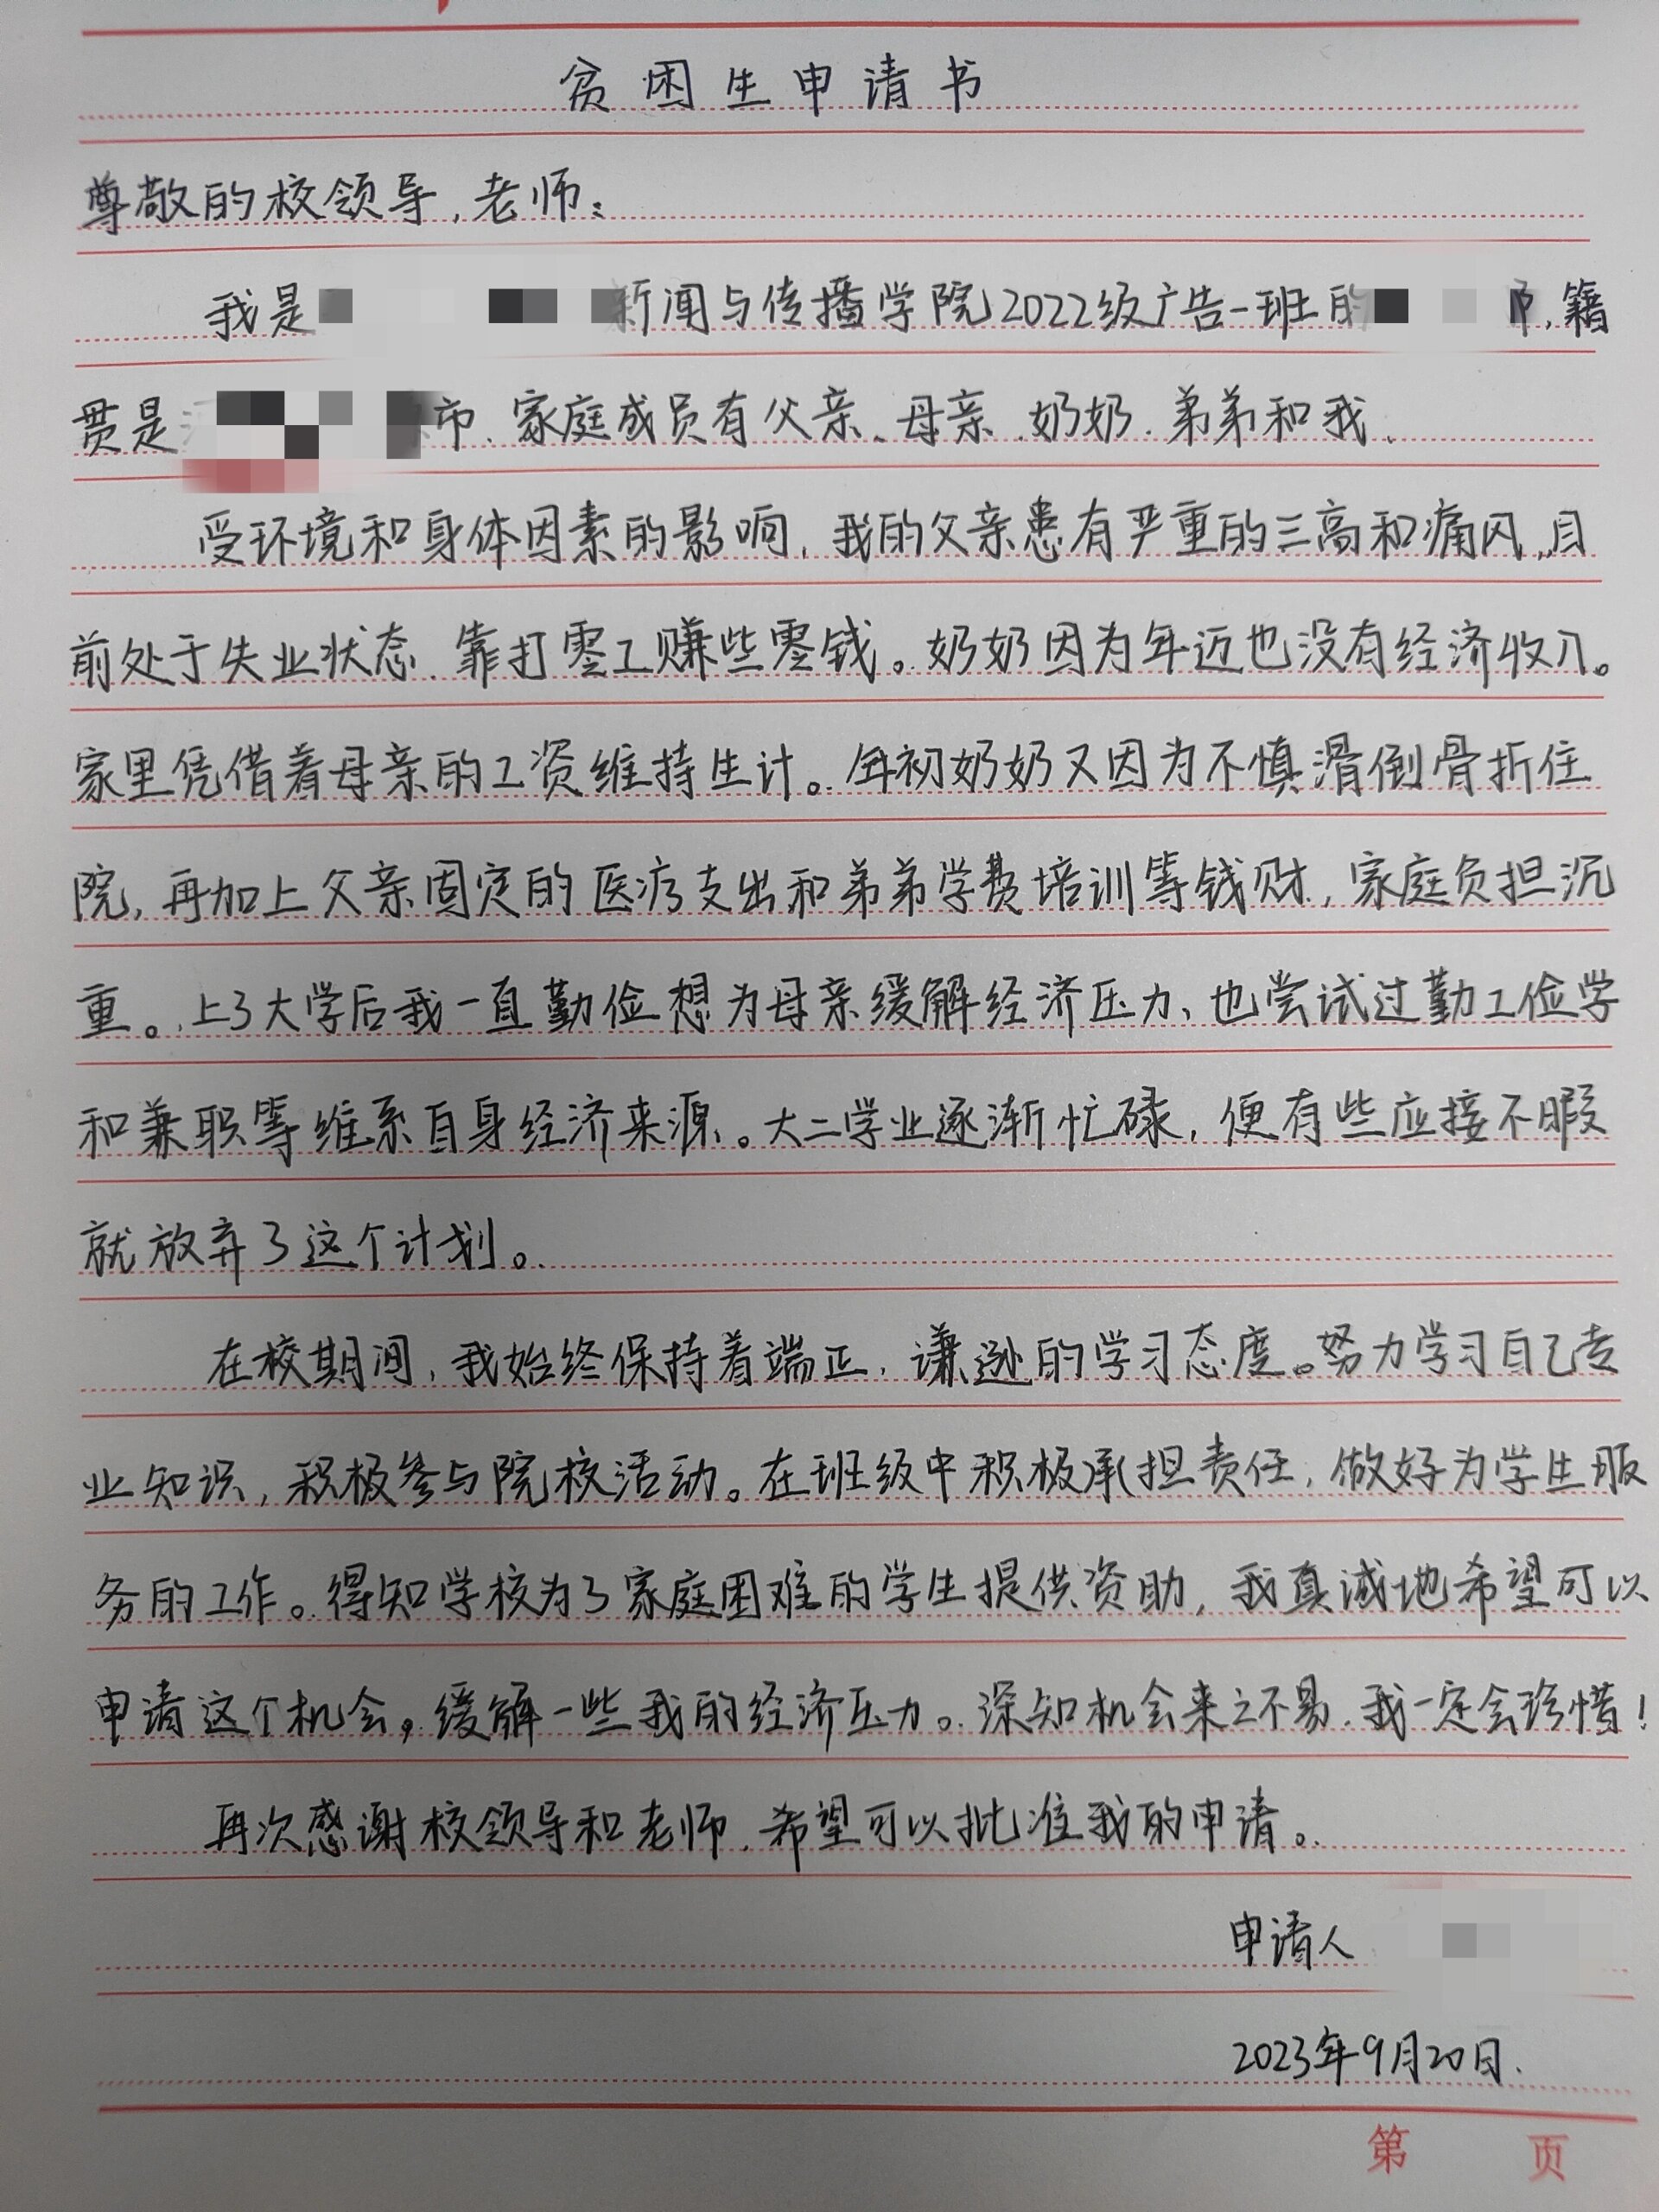 贫困生申请书
尊敬的校领导,老师:
我是 新闻与传播学院2022级广告一班的 ,籍
贯是 市、家庭成员有父亲、母亲、奶奶、弟弟和我、
受环境和身体因素的影响,我的父亲患有严重的三高和痛风,目
前处于失业状态、靠打零工赚些零钱。奶奶因为年迈也没有经济收入。
家里凭借着母亲的工资维持生计。年初奶奶又因为不慎滑倒骨折住
院,再加上父亲固定的医疗支出和弟弟学费培训等钱财,家庭负担沉
重。上了大学后我一直勤俭想为母亲缓解经济压力、也尝试过勤工俭学
和兼职等维系自身经济来源。大二学业逐渐忙碌,便有些应接不暇
就放弃了这个计划。
在校期间,我始终保持着端正、谦逊的学习态度。努力学习自己专
业知识,积极参与院校活动。在班级中积极承担责任,做好为学生服
务的工作。得知学校为了家庭困难的学生提供资助,我真诚地希望可以
申请这个机会,缓解一些我的经济压力。深知机会来之不易、我一定会珍惜!
再次感谢校领导和老师、希望可以批准我的申请。
申请人
2023年9月20日.
第 页